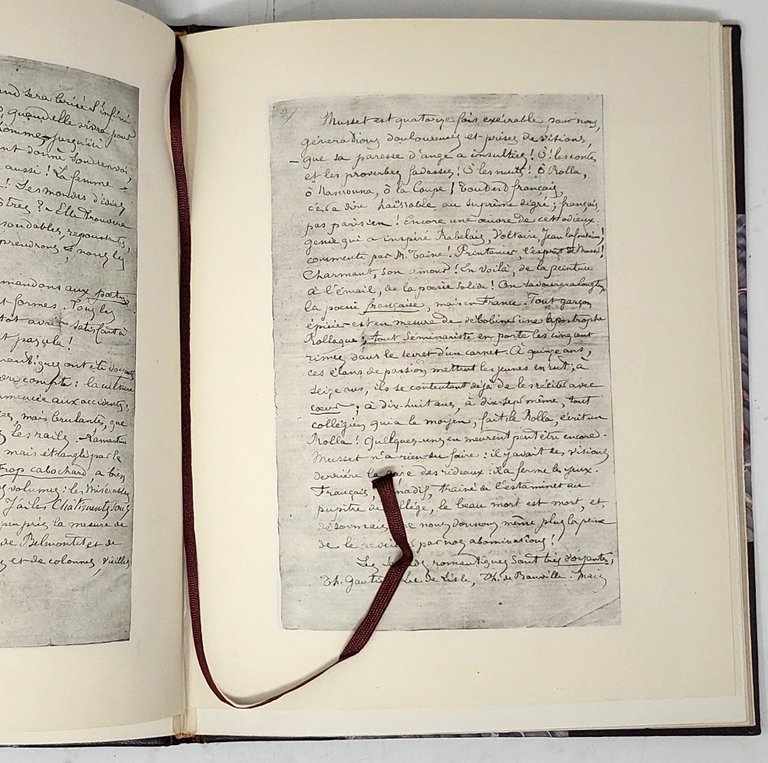 and sera brisé l'infini
quand elle vivra pour
homme, jusqu'ici
ant donné son renvoi,
aussi ! La femme
! Ses mondes d'idées
ôtres ? – Elle trouvera
sondables, repoussantes,
prendrons, nous les
mandons aux poètes
et formes. Tous les
tôt avoir satisfait à
st pas cela !
antiques ont été
dre compte : la culture
mencée aux accidents :
ées, mais brulantes, que
les rails. – Lamartine
mais étranglé par la
trop cabochard, a bien
volumes : Les Misérables
J'ai Les Châtiments sous
peu près la mesure de
de Belmontet et de
et de colonnes, vieilles
Musset est quatorze fois exécrable pour nous,
générations douloureuses et prises de visions,
– que sa paresse d'ange a insultées ! Ô ! les contes
et les proverbes fadasses ! Ô les nuits ! Ô Rolla,
ô Namouna, ô la Coupe ! Tout est français,
c'est à dire haïssable au suprême degré ; français,
pas parisien ! Encore une œuvre de cet odieux
génie qui a inspiré Rabelais, Voltaire, Jean Lafontaine !
commenté par M. Taine ! Printanier, l'esprit de Musset !
Charmant, son amour ! En voilà, de la peinture
à l'émail, de la poésie solide ! On savourera longtps
la poésie française, mais en France. Tout garçon
épicier est en mesure de débobiner une apostrophe
Rollaque ; tout séminariste en porte les cinq cent
rimes dans le secret d'un carnet. À quinze ans,
ces élans de passion mettent les jeunes en rut ; à
seize ans, ils se contentent déjà de les réciter avec
cœur ; à dix-huit ans, à dix-sept même, tout
collégien qui a le moyen, fait le Rolla, écrit un
Rolla ! Quelques-uns en meurent peut être encore.
Musset n'a rien su faire : il y avait des visions
derrière la gaze des rideaux : il a fermé les yeux.
Français, panadif, traîné de l'estaminet au
pupitre de collège, le beau mort est mort, et,
désormais, ne nous donnons même plus la peine
de le réveiller par nos abominations !
Les seconds romantiques sont très voyants :
Th. Gautier, Lec. de Lisle, Th. de Banville. Mais